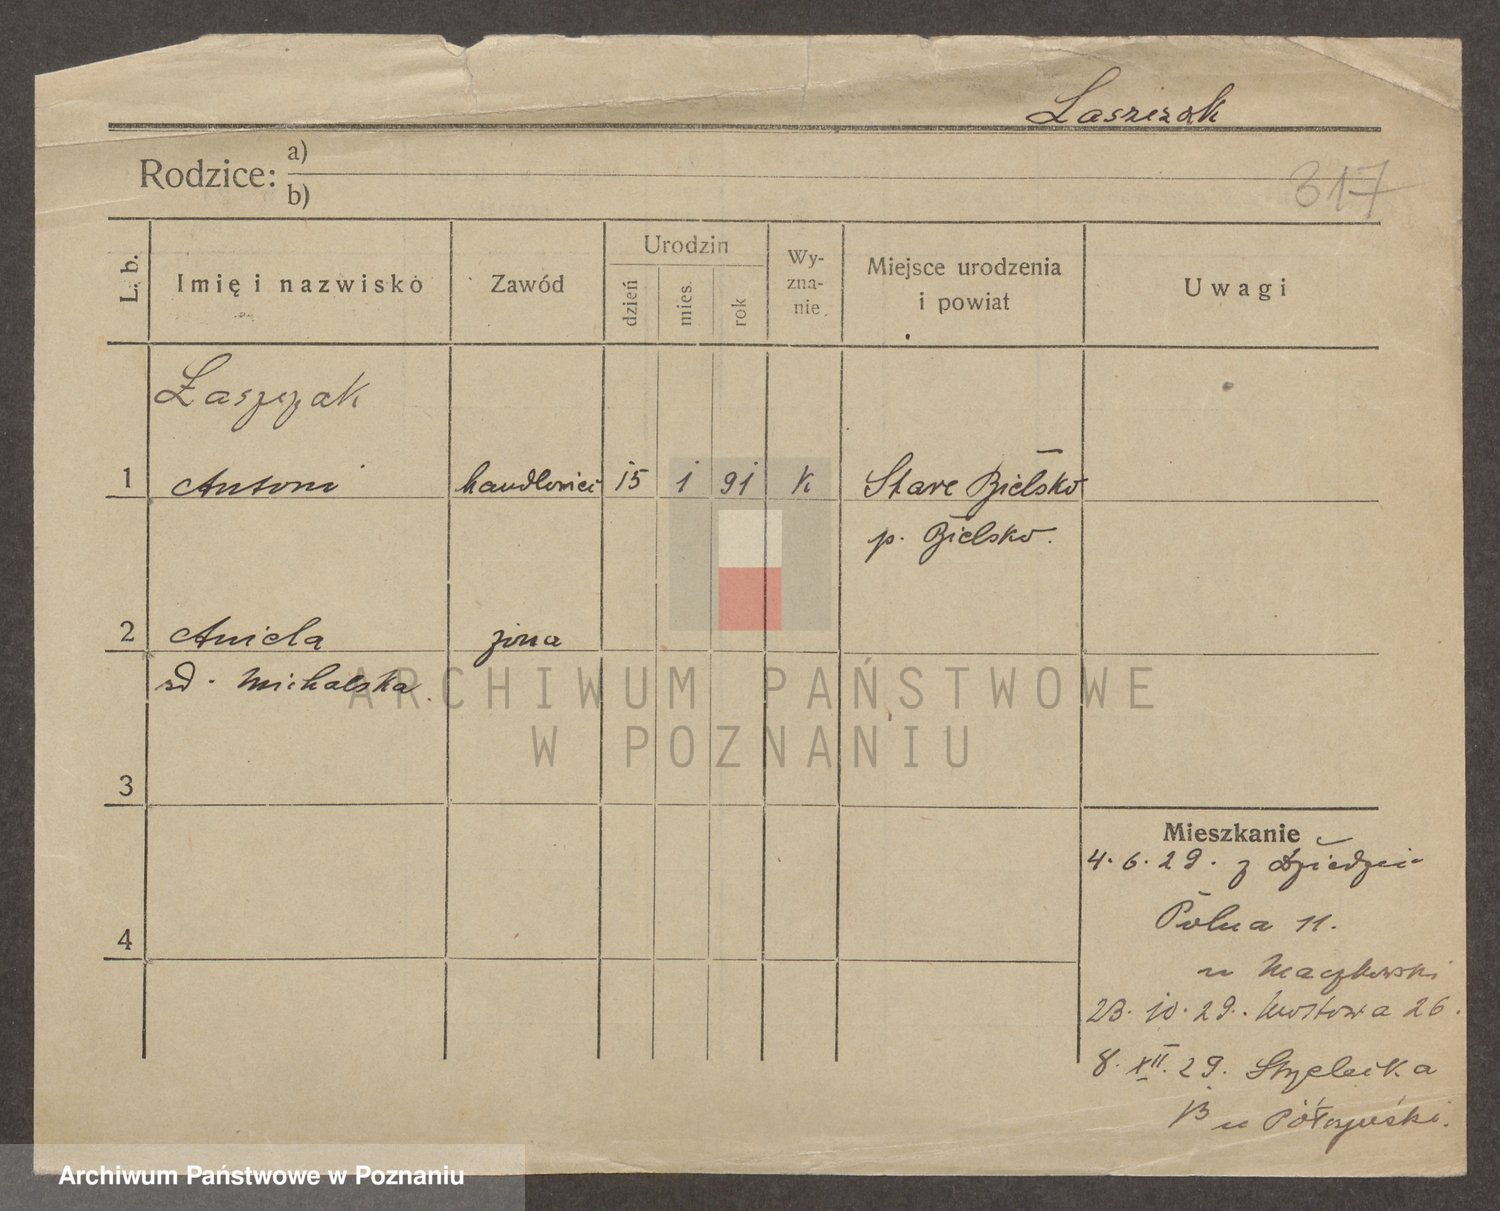 Laszczak
Rodzice: a)
b)
317
L. b.
Imię i nazwisko
Zawód
Urodzin
dzień
mies.
rok
Wy-
zna-
nie
Miejsce urodzenia
i powiat
Uwagi
Łaszczak
1 Antoni handlowiec 15 1 91 k Stare Bielsko
p. Bielsko.
2 Aniela żona
zd. Michalska
3
4
Mieszkanie
4. 6. 29. z Dziedzic
Polna 11.
u Maczkowski
23. 10. 29. Mostowa 26.
8. XII. 29. Strzelecka
u
ARCHIWUM PAŃSTWOWE
W POZNANIU
Archiwum Państwowe w Poznaniu